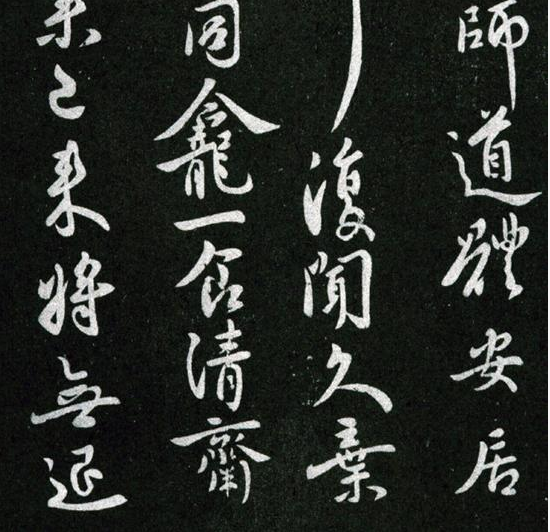 師道體安居
復聞久棄
同龕一食清齋
未已来將無退